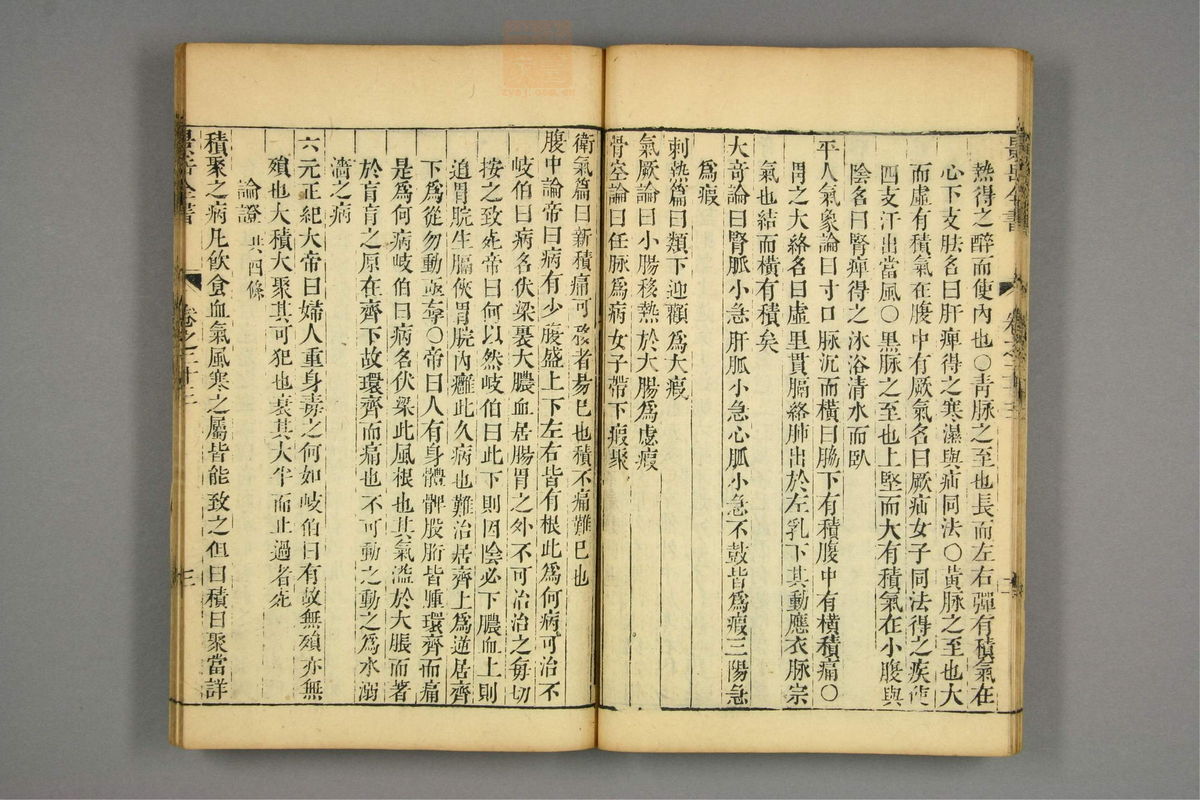 熱得之醉而使內也〇青脉之至也長而左右彈有積氣在
心下支胠名曰肝痺得之寒濕與疝同法〇黃脉之至也大
而虛有積氣在腹中有厥氣名曰厥疝女子同法得之疾使
四支汗出當風〇黑脉之至也上堅而大有積氣在小腹與
陰名曰腎痺得之沐浴清水而臥
平人氣象論曰寸口脉沉而橫曰脇下有積腹中有橫積痛〇
胃之大絡名曰虛里貫膈絡肺出於左乳下其動應衣脉宗
氣也結而橫有積矣
大奇論曰腎脈小急肝脈小急心脈小急不鼓皆爲瘕三陽急
爲瘕
刺熱篇曰頰下逆顴爲大瘕
氣厥論曰小腸移熱於大腸爲虙瘕
骨空論曰任脉爲病女子帶下瘕聚
衛氣篇曰新積痛可移者易已也積不痛難已也
腹中論帝曰病有少腹盛上下左右皆有根此爲何病可治不
岐伯曰病名伏梁裹大膿血居腸胃之外不可治治之每切
按之致死帝曰何以然岐伯曰此下則因陰必下膿血上則
迫胃脘生膈俠胃脘內癰此久病也難治居齊上爲逆居齊
下爲從勿動亟奪〇帝曰人有身體髀股胻皆腫環齊而痛
是爲何病岐伯曰病名伏梁此風根也其氣溢於大腸而著
於肓肓之原在齊下故環齊而痛也不可動之動之爲水溺
濇之病
六元正紀大帝曰婦人重身毒之何如岐伯曰有故無殞亦無
殞也大積大聚其可犯也衰其大半而止過者死
論證 共四條
積聚之病凡飲食血氣風寒之屬皆能致之但曰積曰聚當詳
景岳全書 卷之二十三 三